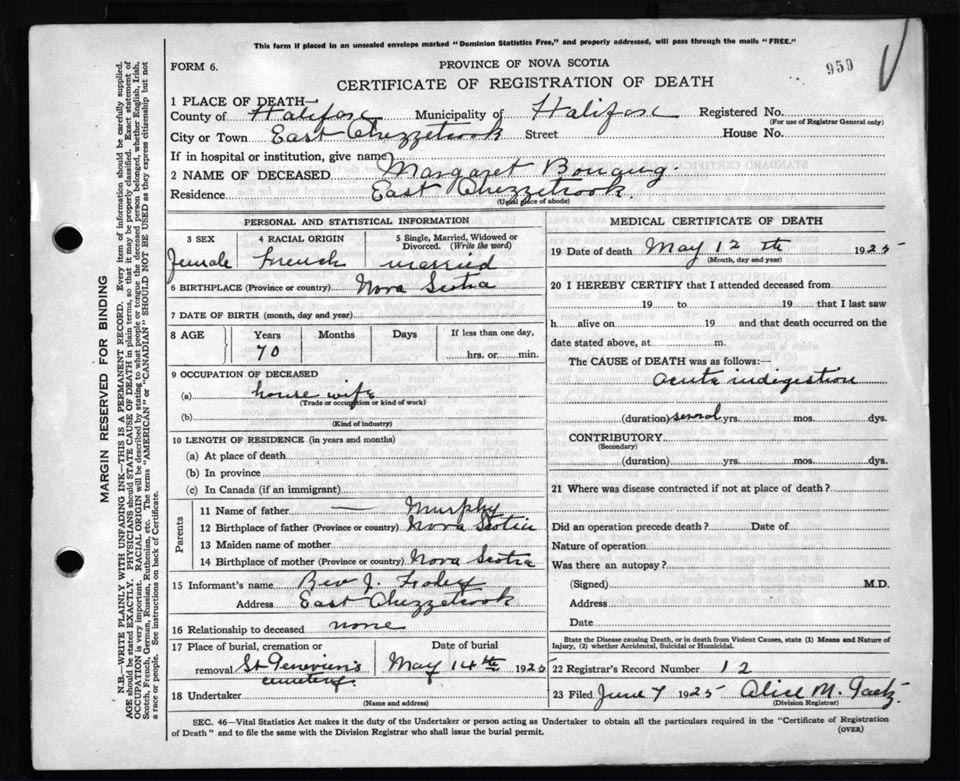 This form if placed in an unsealed envelope marked "Dominion Statistics Free," and properly addressed, will pass through the mails "FREE."
FORM 6.
PROVINCE OF NOVA SCOTIA
959
CERTIFICATE OF REGISTRATION OF DEATH
1 PLACE OF DEATH—
County of Halifax Municipality of Halifax Registered No.
(For use of Registrar General only)
City or Town East Chezzetcook Street House No.
If in hospital or institution, give name
2 NAME OF DECEASED Margaret
Residence East Chezzetcook
(Usual place of abode)
PERSONAL AND STATISTICAL INFORMATION
3 SEX 4 RACIAL ORIGIN 5 Single, Married, Widowed or Divorced. (Write the word)
Female French married
6 BIRTHPLACE (Province or country) Nova Scotia
7 DATE OF BIRTH (month, day and year)
8 AGE Years Months Days If less than one day,
70 hrs. or min.
9 OCCUPATION OF DECEASED
(a) house wife
(Trade or occupation or kind of work)
(b)
(Kind of industry)
10 LENGTH OF RESIDENCE (in years and months)
(a) At place of death
(b) In province
(c) In Canada (if an immigrant)
Parents
11 Name of father — Murphy
12 Birthplace of father (Province or country) Nova Scotia
13 Maiden name of mother
14 Birthplace of mother (Province or country) Nova Scotia
15 Informant's name Rev J.
Address East Chezzetcook
16 Relationship to deceased none
17 Place of burial, cremation or removal Date of burial
St cemetery May 14th 1925
18 Undertaker
(Name and address)
MEDICAL CERTIFICATE OF DEATH
19 Date of death May 12 th 1925
(Month, day and year)
20 I HEREBY CERTIFY that I attended deceased from
19 to 19 that I last saw
h alive on 19 and that death occurred on the
date stated above, at m.
The CAUSE of DEATH was as follows:—
acute indigestion
(duration) several yrs. mos. dys.
CONTRIBUTORY
(Secondary)
(duration) yrs. mos. dys.
21 Where was disease contracted if not at place of death?
Did an operation precede death? Date of
Nature of operation
Was there an autopsy?
(Signed) M.D.
Address
Date
State the Disease causing Death, or in death from Violent Causes, state (1) Means and Nature of
Injury, (2) whether Accidental, Suicidal or Homicidal.
22 Registrar's Record Number 12
23 Filed June 7 1925 Alice M. Gaetz
(Division Registrar)
SEC. 46—Vital Statistics Act makes it the duty of the Undertaker or person acting as Undertaker to obtain all the particulars required in the "Certificate of Registration
of Death" and to file the same with the Division Registrar who shall issue the burial permit.
(OVER)
MARGIN RESERVED FOR BINDING
N.B.—WRITE PLAINLY WITH UNFADING INK—THIS IS A PERMANENT RECORD. Every item of information should be carefully supplied.
AGE should be stated EXACTLY. PHYSICIANS should STATE CAUSE OF DEATH in plain terms, so that it may be properly classified. Exact statement of
OCCUPATION is very important. RACIAL ORIGIN will be described by stating to what people or tongue the deceased person belonged, whether English, Irish,
Scotch, French, German, Russian, Ruthenian, etc. The terms "AMERICAN" or "CANADIAN" SHOULD NOT BE USED as they express citizenship but not
a race or people. See instructions on back of Certificate.